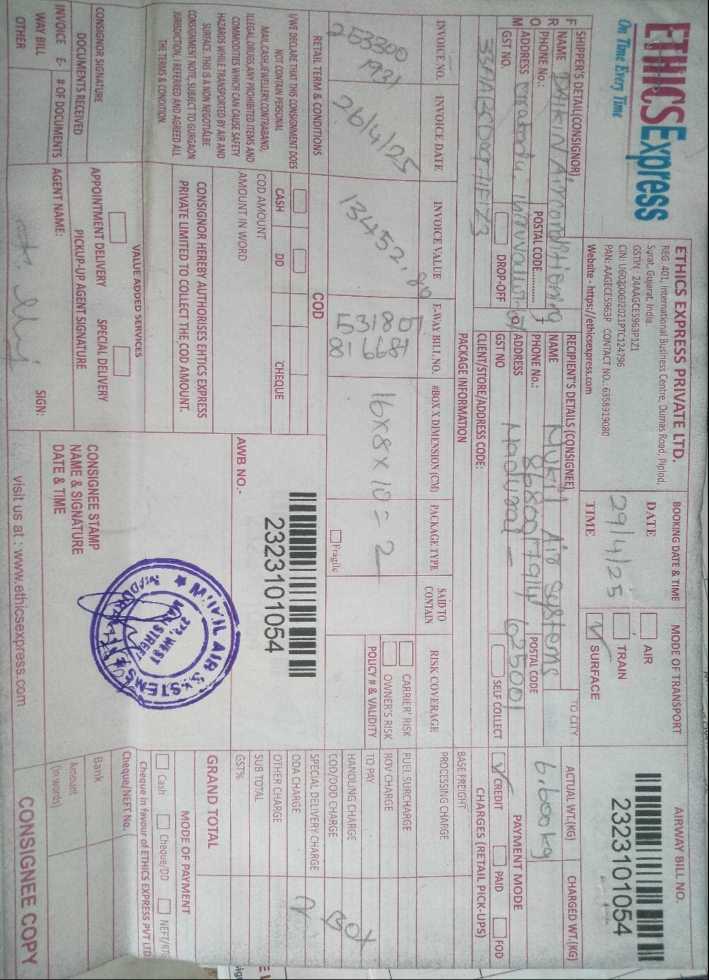 ETHICSExpress
On Time Every Time
ETHICS EXPRESS PRIVATE LTD.
REG 401, International Business Centre, Dumas Road, Piplod,
Surat, Gujarat, India.
GSTIN : 24AAGCE5963P1Z1
CIN: U60200GJ2021PTC124796
PAN: AAGECE5963P CONTACT NO.: 6358919080
Website - https://ethicsexpress.com
BOOKING DATE & TIME
DATE
29/4/25
TIME
MODE OF TRANSPORT
AIR
TRAIN
SURFACE
AIRWAY BILL NO.
2323101054
SHIPPER'S DETAIL(CONSIGNOR)
FROM
NAME DAIKIN Airconditioning
PHONE No.:
POSTAL CODE
ADDRESS
GST NO.
DROP-OFF
TO
RECIPIENT'S DETAILS (CONSIGNEE)
NAME
Air systems
PHONE No.:
POSTAL CODE
ADDRESS
625001
GST NO
SELF COLLECT
CLIENT/STORE/ADDRESS CODE:
TO CITY
ACTUAL WT.(KG)
CHARGED WT.(KG)
PAYMENT MODE
CREDIT
PAID
FOD
CHARGES (RETAIL PICK-UPS)
PACKAGE INFORMATION
INVOICE NO.
INVOICE DATE
INVOICE VALUE
E-WAY BILL NO.
#BOX X DIMENSION (CM)
PACKAGE TYPE
SAID TO CONTAIN
RISK COVERAGE
253300
1931
26/4/25
13452.89
16x8x10=2
Fragile
CARRIER' RISK
OWNER'S RISK
POLICY # & VALIDITY
BASE FREIGHT
PROCESSING CHARGE
FUEL SURCHARGE
ROV CHARGE
TO PAY
HANDLING CHARGE
COD/DOD CHARGE
SPECIAL DELIVERY CHARGE
ODA CHARGE
OTHER CHARGE
SUB TOTAL
GST%
GRAND TOTAL
2 BOX
RETAIL TERM & CONDITIONS
I/WE DECLARE THAT THIS CONSIGNMENT DOES
NOT CONTAIN PERSONAL
MAIL,CASH,JEWELLERY,CONTRABAND,
ILLEGAL DRUGS,ANY PROHIBITED ITEMS AND
COMMODITIES WHICH CAN CAUSE SAFETY
HAZARDS WHILE TRANSPORTED BY AIR AND
SURFACE. THIS IS A NON NEGOTIALBE
CONSIGNMENT NOTE, SUBJECT TO GURGAON
JURISDICTION, I REFERRED AND AGREED ALL
THE TERMS & CONDITION.
COD
CASH
DD
CHEQUE
COD AMOUNT
AMOUNT IN WORD
CONSIGNOR HEREBY AUTHORISES EHTICS EXPRESS
PRIVATE LIMITED TO COLLECT THE COD AMOUNT.
AWB NO.-
2323101054
VALUE ADDED SERVICES
APPOINTMENT DELIVERY
SPECIAL DELIVERY
CONSIGNOR SIGNATURE
DOCUMENTS RECEIVED
PICKUP-UP AGENT SIGNATURE
INVOICE & # OF DOCUMENTS
WAY BILL
OTHER
AGENT NAME:
SIGN:
CONSIGNEE STAMP
NAME & SIGNATURE
DATE & TIME
AIR SYSTEMS
WEST
STREET
MODE OF PAYMENT
Cash
Cheque/DD
Cheque in favour of ETHICS EXPRESS PVT LTD
Cheque/NEFT No.
Bank
Amount
(in words)
visit us at : www.ethicsexpress.com
CONSIGNEE COPY